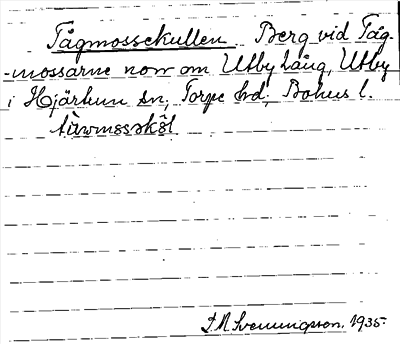 Tågmossekullen Berg vid Tåg-
-mossarne norr om Utby hång, Utby
i Hjärtum sn, Torpe hd, Bohus l.
D A Svenningson. 1935.